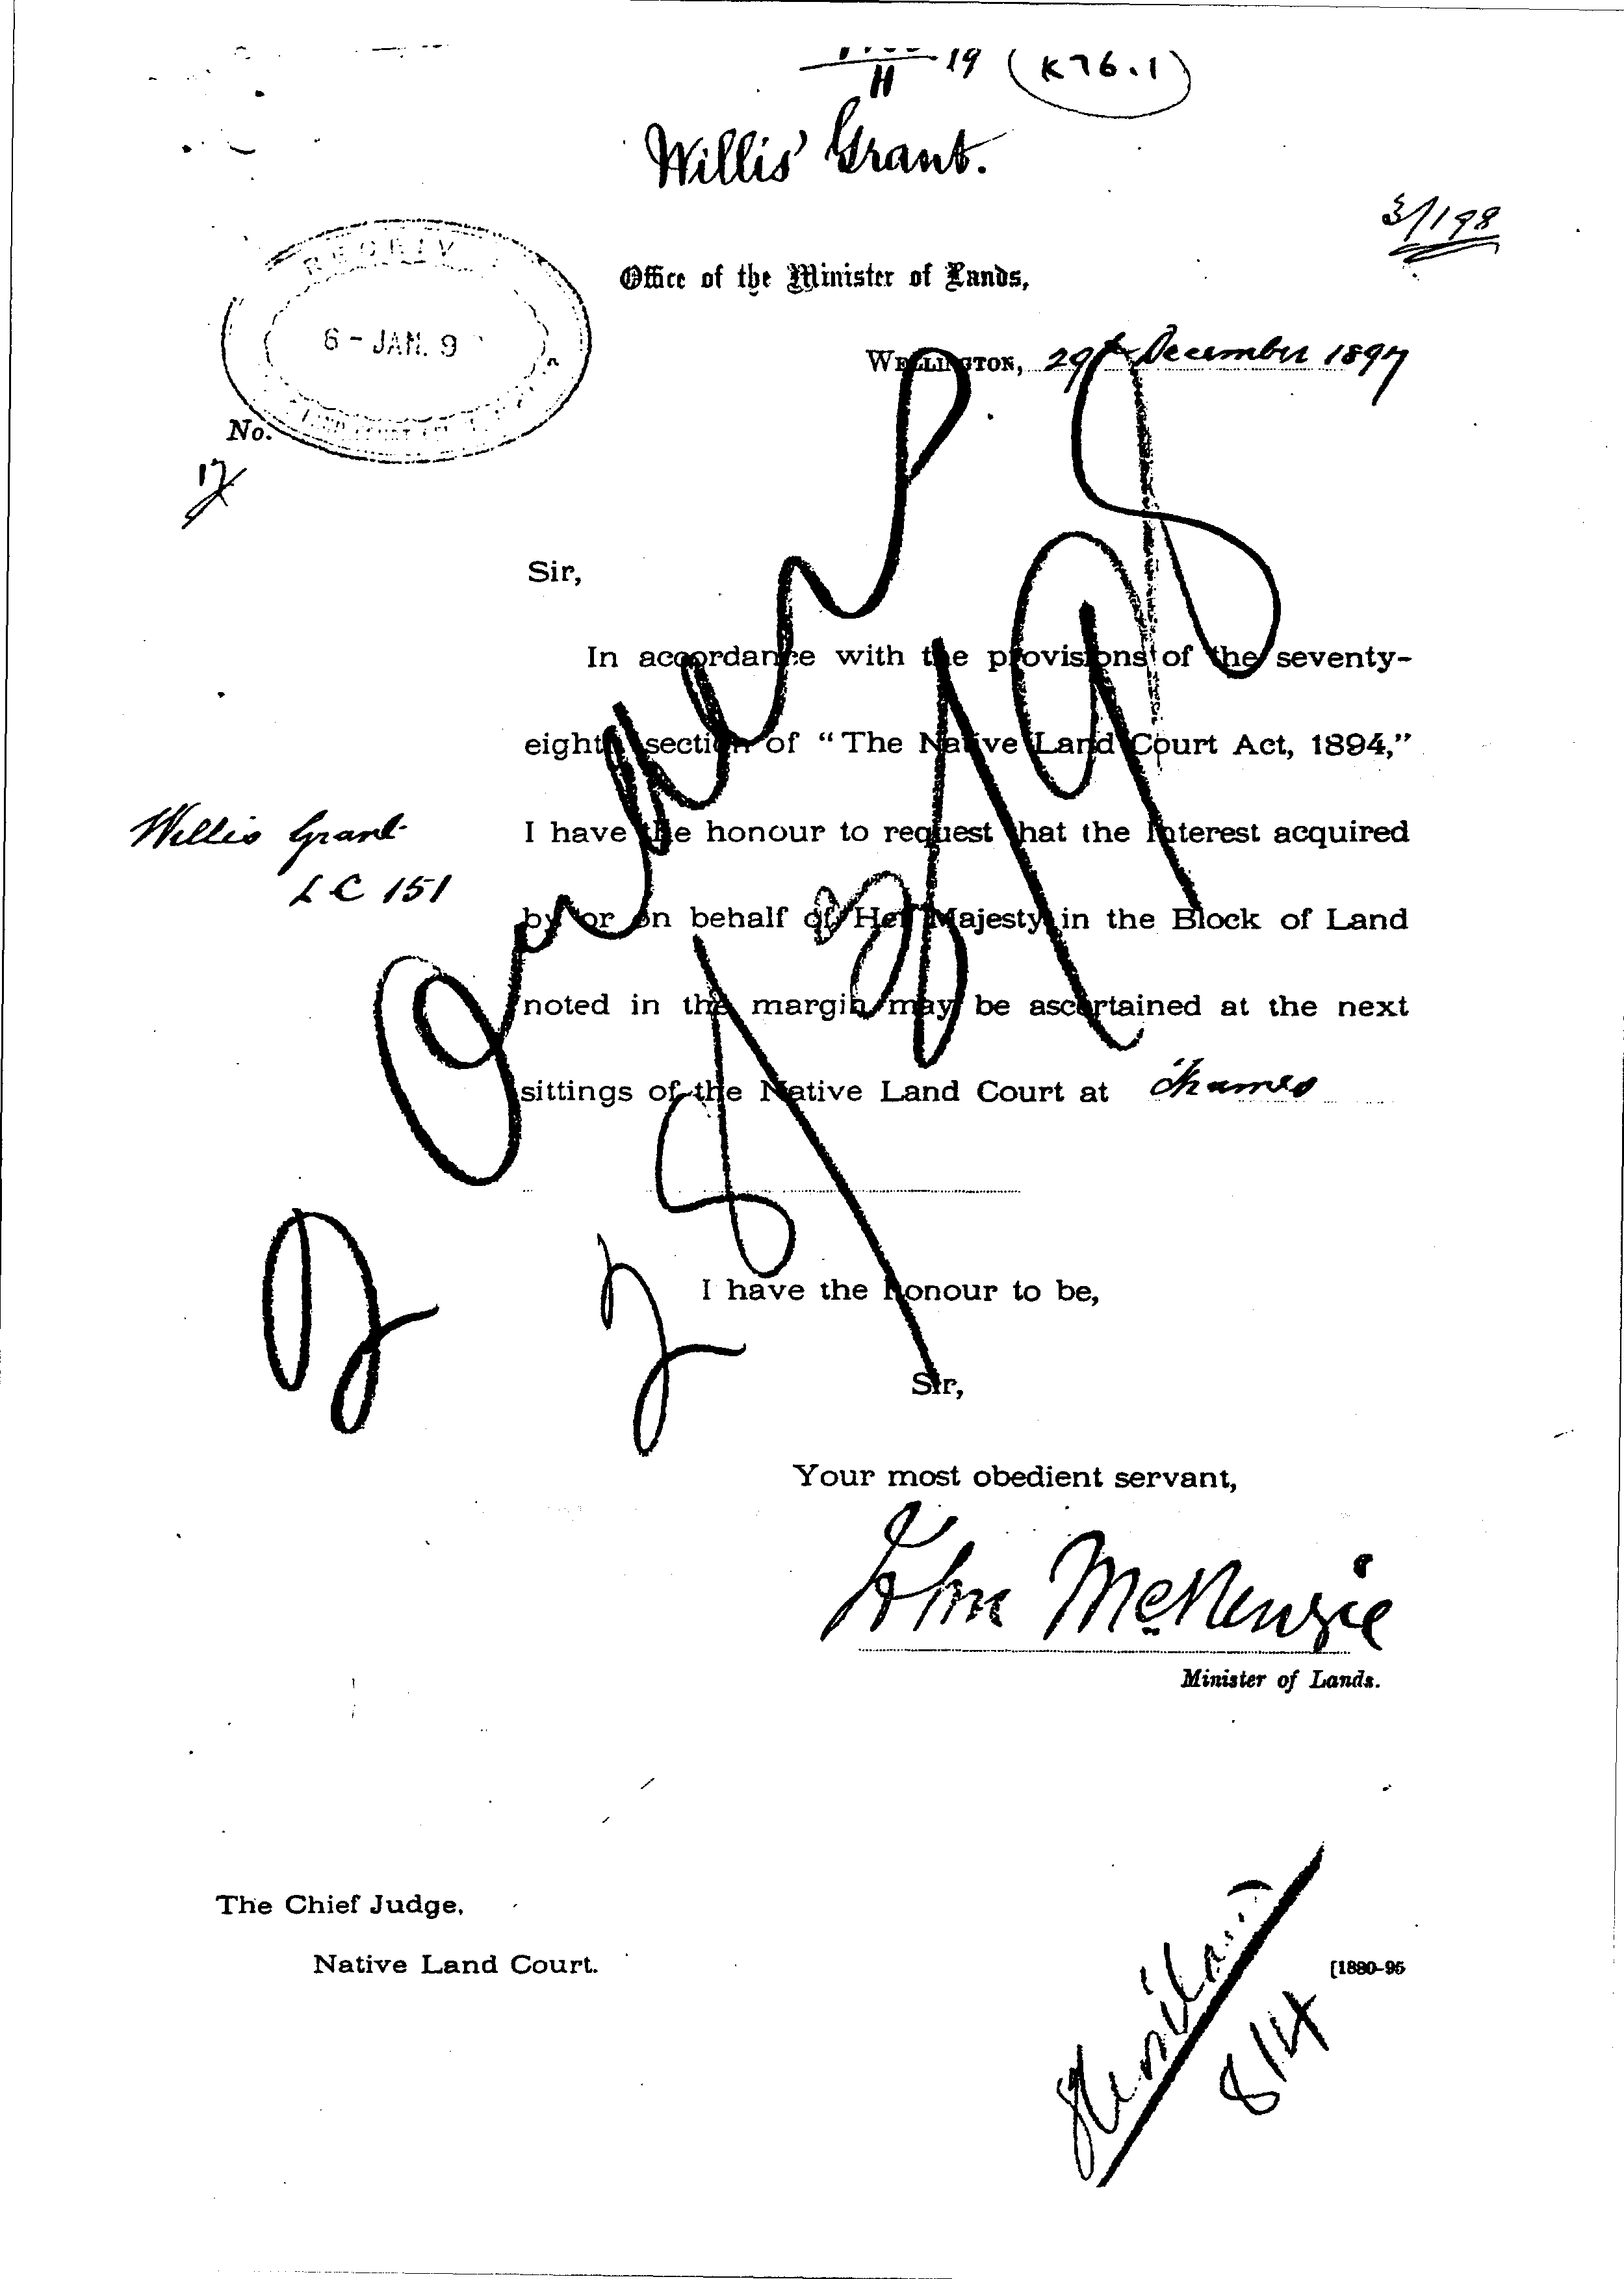 H 19 (K76.1)
Willis' Grant.
3/198
Office of the Minister of Lands,
6 - JAN. 9
WELLINGTON, 29th December 1897
No.
Sir,
In accordance with the provisions of the seventy-
eighth section of "The Native Land Court Act, 1894,"
Willis Grant
I have the honour to request that the Interest acquired
LC 151
by or on behalf of Her Majesty in the Block of Land
noted in the margin may be ascertained at the next
sittings of the Native Land Court at Thames
I have the honour to be,
Sir,
Your most obedient servant,
John McKenzie
Minister of Lands.
The Chief Judge,
Native Land Court.
[1880-95
8/4